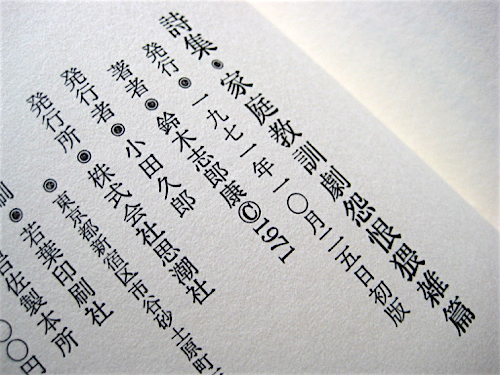 詩集◉家庭教訓劇怨恨猥雑篇
発行◉一九七一年一〇月二五日初版
著者◉鈴木志郎康©1971
発行者◉小田久郎
発行所◉株式会社思潮社
東京都新宿区市谷砂土原町
刷◉若葉印刷社
◉岩佐製本所
〇〇円